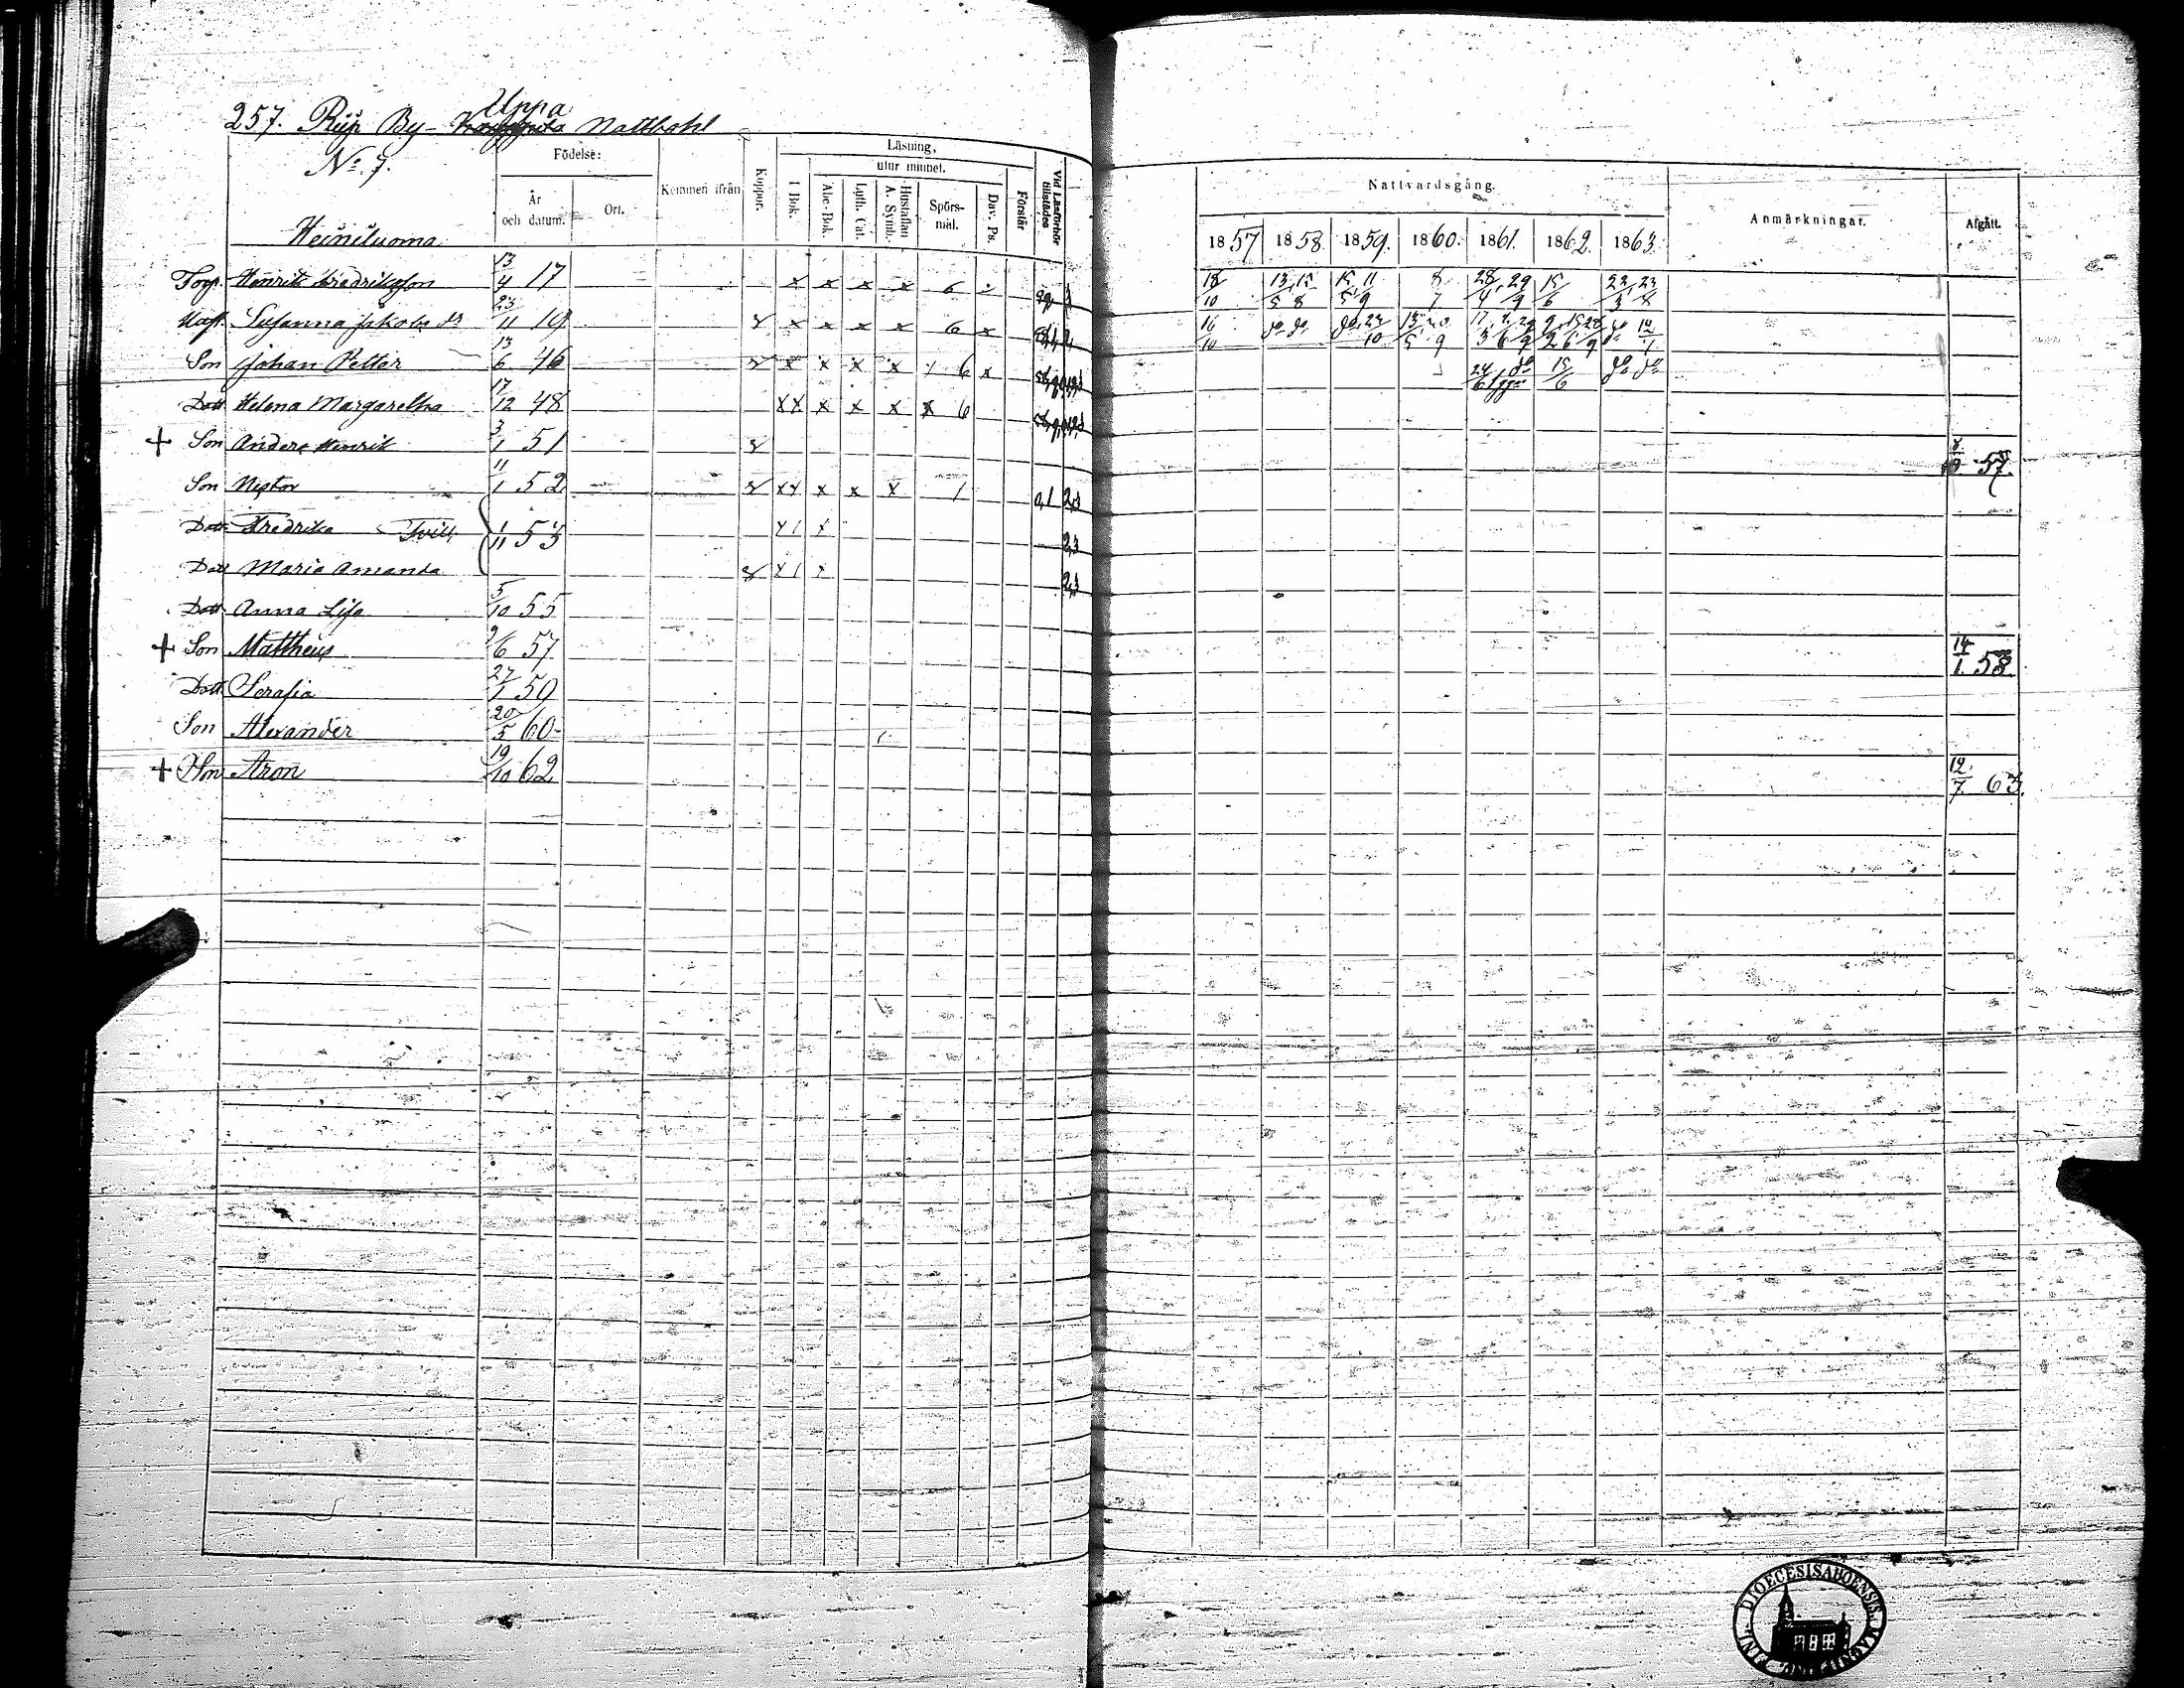 Uppa
257. Rijs By- Nattbohl
No. 7.
Födelse:
Kommen ifrån
Koppor.
Läsning,
utur minnet.
År och datum.
Ort.
I Bok.
Abc-Bok.
Luth. Cat.
Hustaflan A. Symb.
Spörs-mål.
Dav. Ps.
Förstår
Vid Läsförhör tillstädes
Nattvardsgång.
Anmärkningar.
Afgått.
1857 1858. 1859. 1860. 1861. 1862. 1863.
Heiniluoma
Torp. Henrik Fredriksson 13/4 17 x x x x 6 18/10 13/5, 15/8 15/5, 11/9 8/7 28/4, 29/9 15/6 22/3, 23/8
Hust. Susanna Jakobs dr 23/11 19 x x x x 6 x 16/10 do do do 23/10
Son Johan Petter 13/6 46 x x x x 6 x 24/6 do 15/6 do do
Dott. Helena Margaretha 17/12 48 xx x x x x 6
+ Son Anders Henrik 3/1 51 57.
Son Nestor 11/1 52 xx x x x 1 0,1 2,3
Dott. Fredrika Tvill. 1/11 53 x 1 x 2,3
Dott Maria Amanda x 1 x 2,3
Dott. Anna Lisa 5/10 55
+ Son Mattheus 9/6 57 14/1. 58.
Dott. Serafia 27/1 59
Son Alexander 20/5 60
+ Son Aron 19/10 62 12/7. 63.